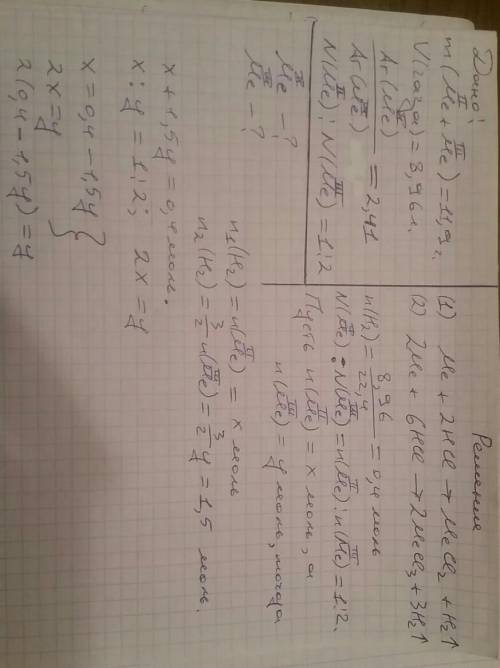 Дано:
m(Me^II + Me^III) = 11,9 г.
V(газа) = 8,96 л.
Ar(Me^II)
Ar(Me^III) = 2,41
N(Me^II) : N(Me^III) = 1:2
Me^II - ?
Me^III - ?
Решение
(1) Me + 2HCl → MeCl₂ + H₂↑
(2) 2Me + 6HCl → 2MeCl₃ + 3H₂↑
n(H₂) = 8,96/22,4 = 0,4 моль
N(Me^II) : N(Me^III) = n(Me^II) : n(Me^III) = 1:2.
Пусть n(Me^II) = x моль, а
n(Me^III) = y моль, тогда
n₁(H₂) = n(Me^II) = x моль
n₂(H₂) = 3/2 n(Me^III) = 3/2 y = 1,5 моль.
x + 1,5y = 0,4 моль.
x : y = 1:2; 2x = y
x = 0,4 - 1,5y }
2x = y
2(0,4 - 1,5y) = y